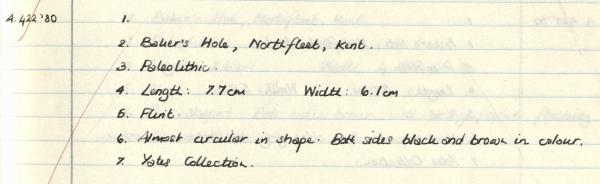 A.422'80 1.
2. Baker's Hole, Northfleet, Kent.
3. Paleolithic.
4. Length: 7.7cm Width: 6.1cm
5. Flint.
6. Almost circular in shape. Both sides black and brown in colour.
7. Yates Collection.